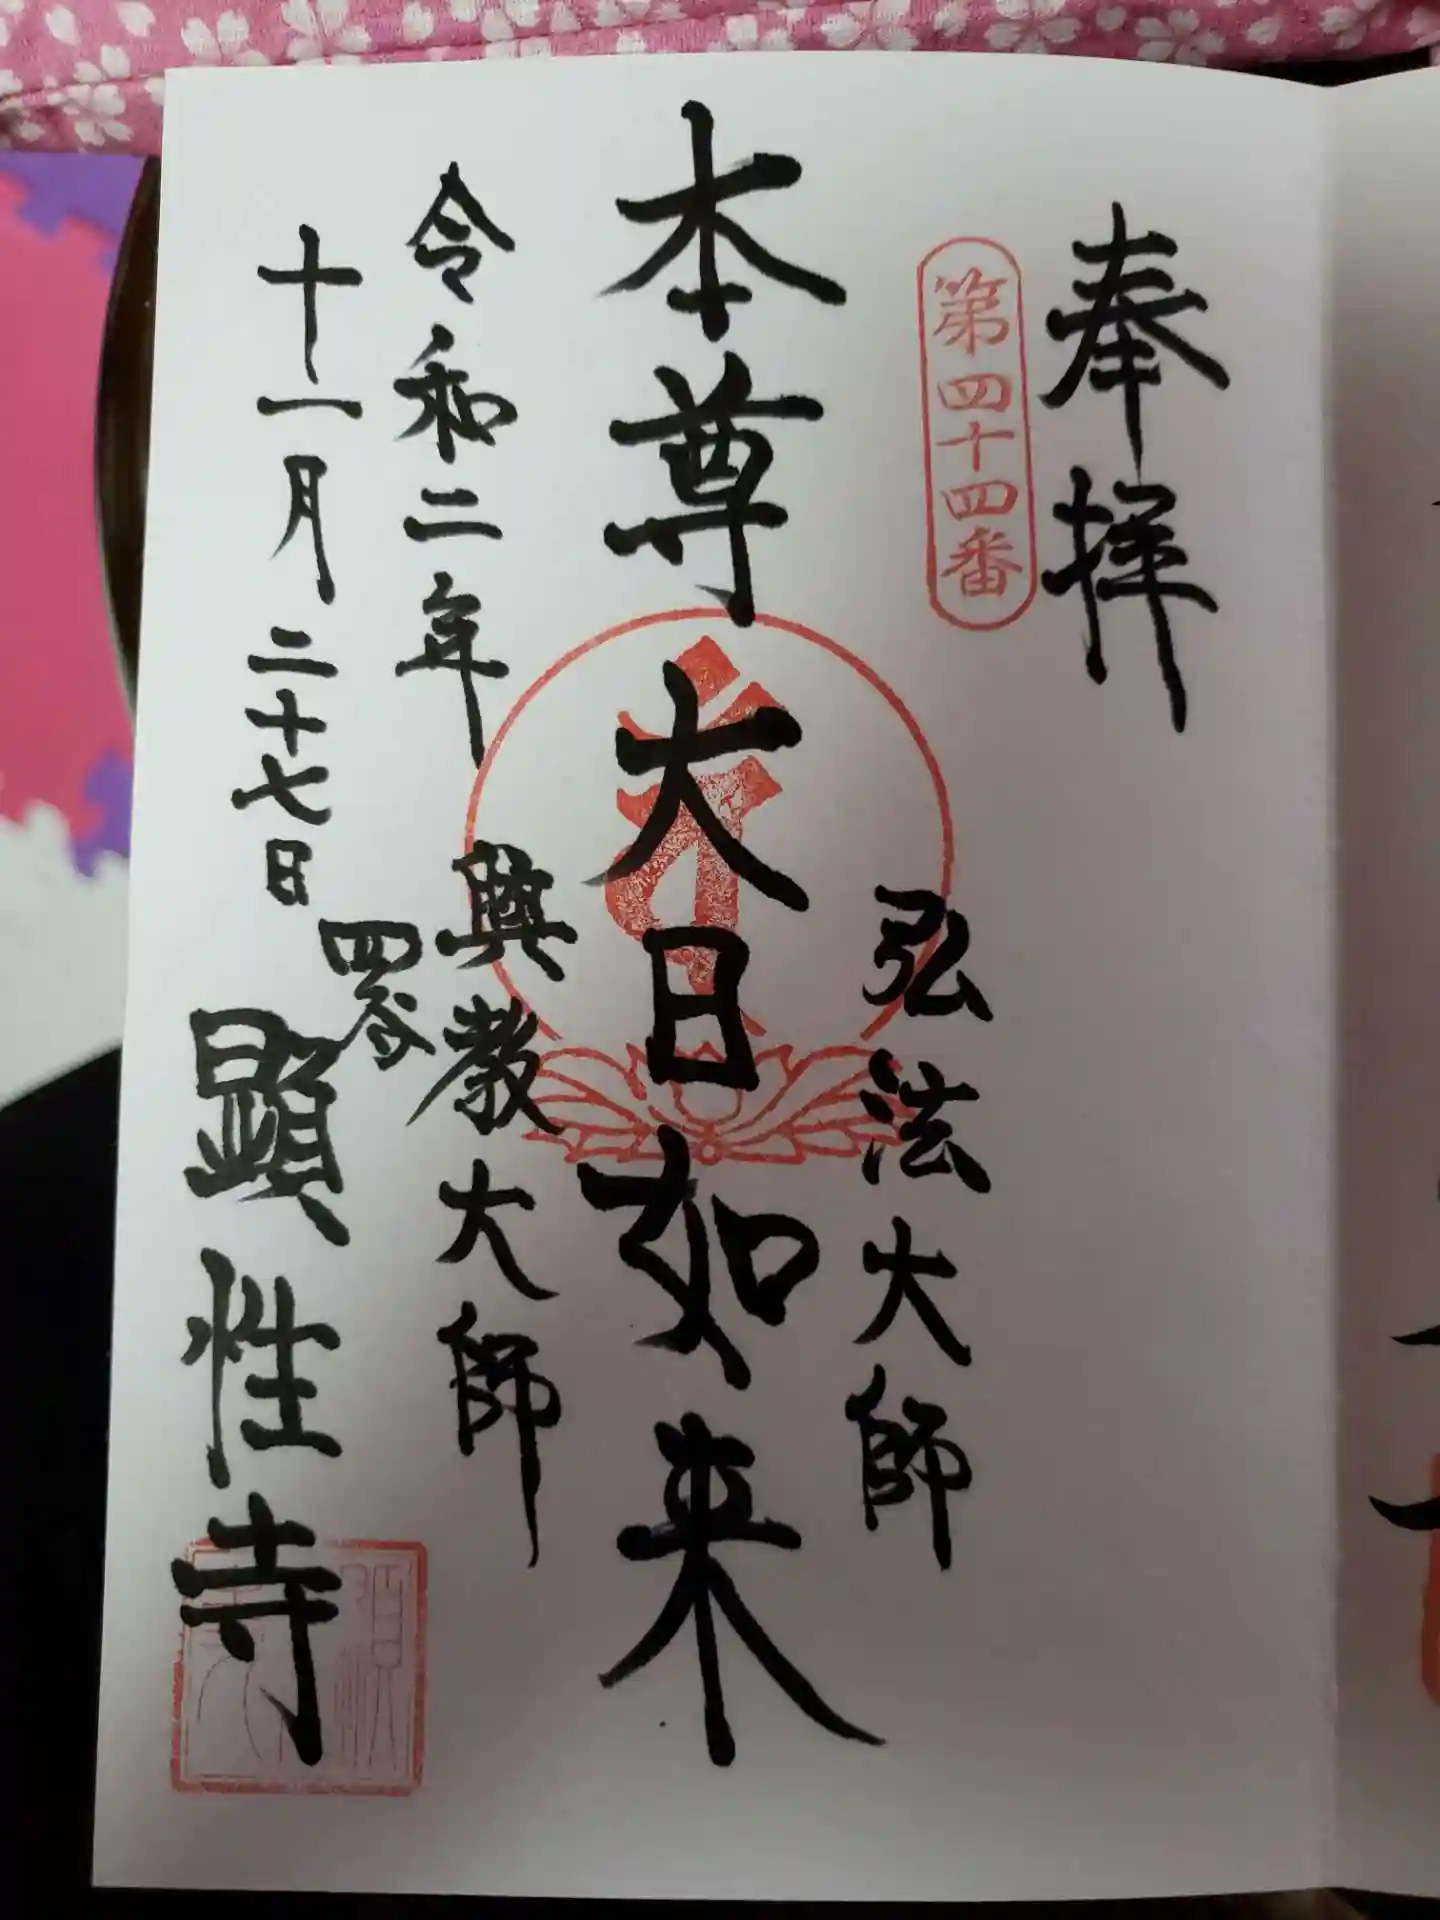 奉拝
第四十四番
弘法大師
本尊 大日如来
興教大師
令和二年
十一月二十七日
四谷
顕性寺